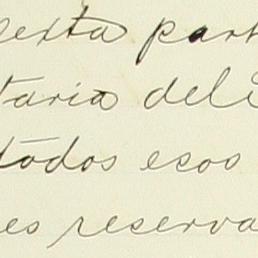 erta part
taria del
todos esos
es reserva